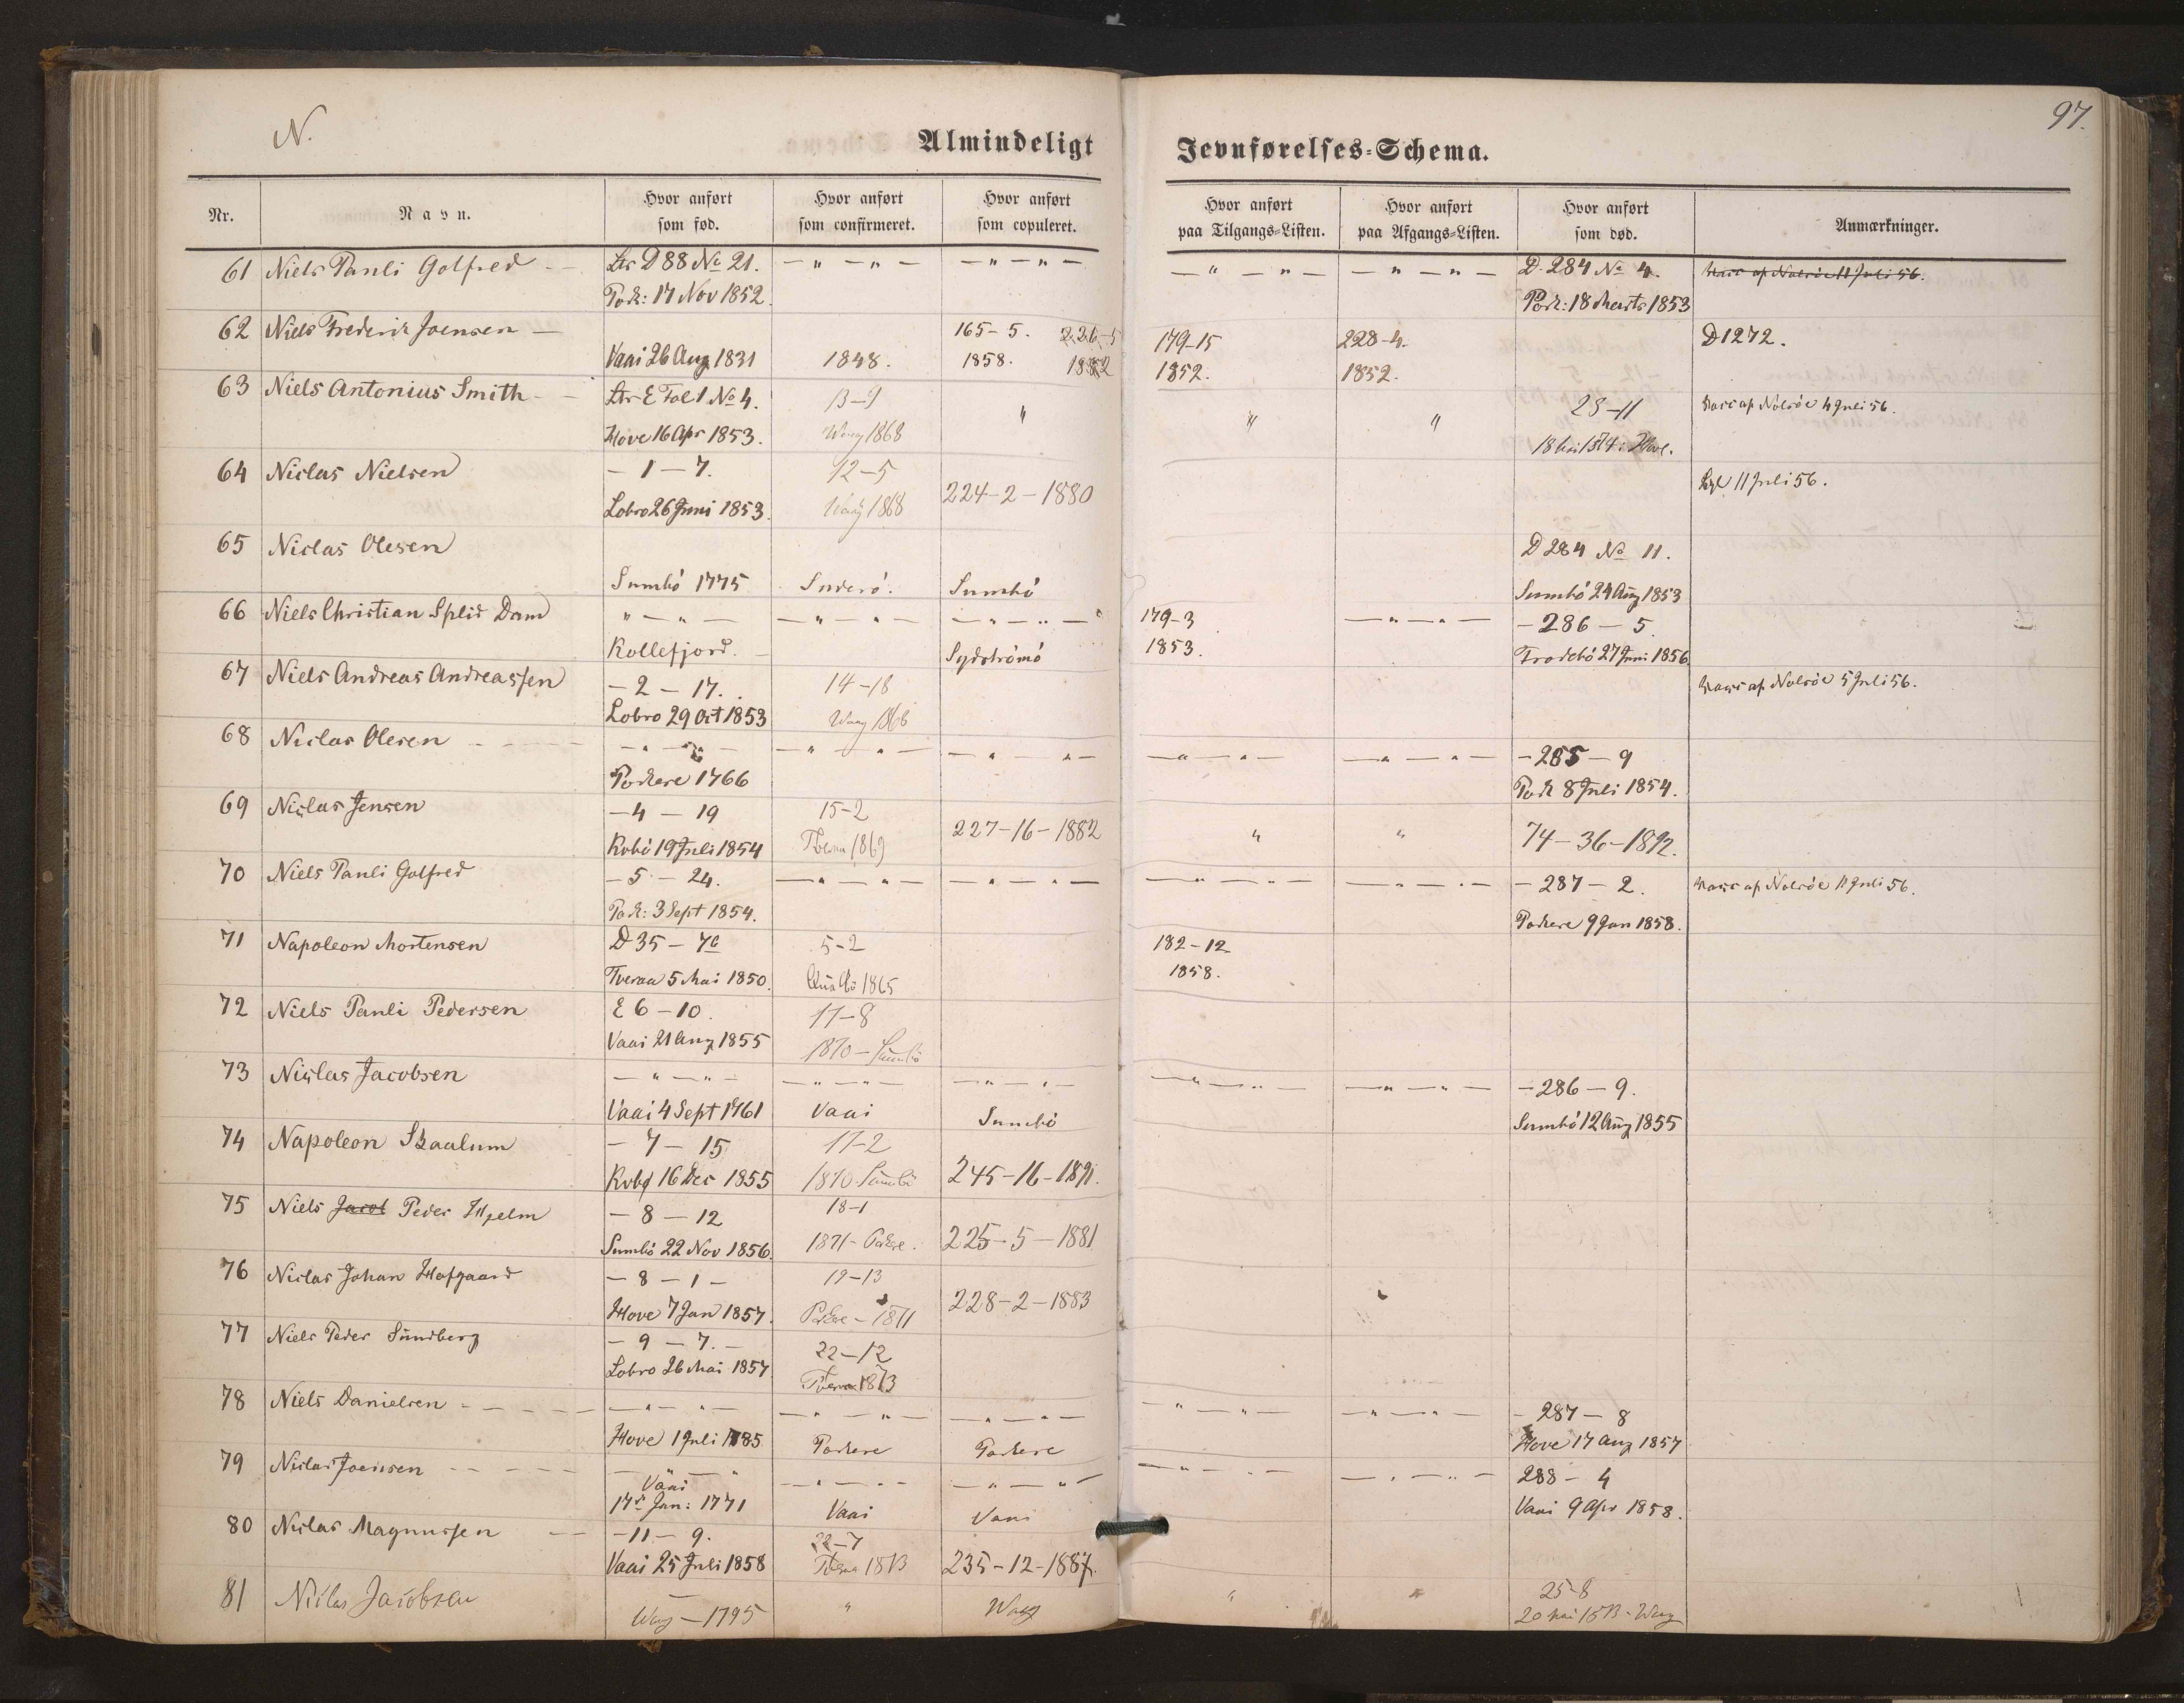 N.
97.
Almindeligt
Jevnførelses-Schema.
Nr.
Navn.
Hvor anført som fød.
Hvor anført som confirmeret.
Hvor anført som copuleret.
Hvor anført paa Tilgangs-Listen.
Hvor anført paa Afgangs-Listen.
Hvor anført som død.
Anmærkninger.
61 Niels Pauli Golfred — Ltr D 88 No 21. — " — " — — " — " — — " — " — — " — " — D. 284 No 4. af Nolsöe 11 Juli 56.
Pork: 17 Nov 1852. Pork: 18 Marts 1853
62 Niels Frederik Joensen — 165-5. 226-5 179-15 228-4. D 1272.
Vaai 26 Aug 1831 1848. 1858. 1882 1852. 1852.
63 Niels Antonius Smith — Ltr E Fol 1 No 4. 13-9 " " " 23-11 af Nolsöe 4 Juli 56.
Hove 16 Apr 1853. Waag 1868 18 1874 i Hove.
64 Niclas Nielsen — 1 — 7. 12-5 224-2-1880 11 Juli 56.
Lobro 26 Juni 1853. Waag 1868
65 Niclas Olesen D 284 No 11.
Sumbö 1775 Suderö. Sumbö Sumbö 24 Aug 1853
66 Niels Christian Splid Dam " — " — — " — " — — " — " — 179-3 — " — " — — 286 — 5.
Kollefjord. Sydströmö 1853. Frodebö 27 Juni 1856.
67 Niels Andreas Andreassen — 2 — 17. 14-18 af Nolsöe 5 Juli 56.
Lobro 29 Oct 1853 Waag 1868
68 Niclas Olesen — " — " — — " — " — — " — " — — " — " — — " — " — — 285 — 9
Porkere 1766 Pork 8 Juli 1854.
69 Niclas Jensen — 4 — 19 15-2 227-16-1882 " " 74-36-1892.
Kvbö 19 Juli 1854 Tveraa 1869
70 Niels Pauli Golfred — 5 — 24. — " — " — — " — " — — " — " — — " — " — — 287 — 2. af Nolsöe 11 Juli 56.
Pork: 3 Sept 1854. Porkere 9 Jan 1858.
71 Napoleon Mortensen D 35 — 76 5-2 182-12
Tveraa 5 Mai 1850. 1865 1858.
72 Niels Pauli Pedersen E 6 — 10. 17-8
Vaai 21 Aug 1855 1870 — Sumbö
73 Niclas Jacobsen — " — " — — " — " — — " — " — — " — " — — " — " — — 286 — 9.
Vaai 4 Sept 1761 Vaai Sumbö Sumbö 12 Aug 1855
74 Napoleon Skaalum — 7 — 15 17-2 245-16-1891.
Kvbø 16 Dec 1855 1870 Sumbö
75 Niels Jacob Peder Hjelm — 8 — 12 18-1 225-5-1881
Sumbö 22 Nov 1856. 1871 — Porkere.
76 Niclas Johan Hofgaard — 8 — 1 — 19-13 228-2-1883
Hove 7 Jan 1857. Porkere — 1871
77 Niels Peder Sundberg — 9 — 7. — 22-12
Lobro 26 Mai 1857 Tveraa 1873
78 Niels Danielsen — — " — " — — " — " — — " — " — — " — " — — " — " — — 287 — 8
Hove 1 Juli 1785 Porkere Porkere Hove 17 Aug 1857
79 Niclas Joensen — — " — " — " — " — — " — " — — " — " — — " — " — 288 — 4
Vaai
17de Jan: 1771 Vaai Vaai Vaai 9 Apr 1858.
80 Niclas Magnussen — 11 — 9. 22-7
Vaai 25 Juli 1858 Tveraa 1873 235-12-1887.
81 Niclas Jacobsen " " " 25-8
Waag — 1795 Waag 20 Mai 1873 — Waag